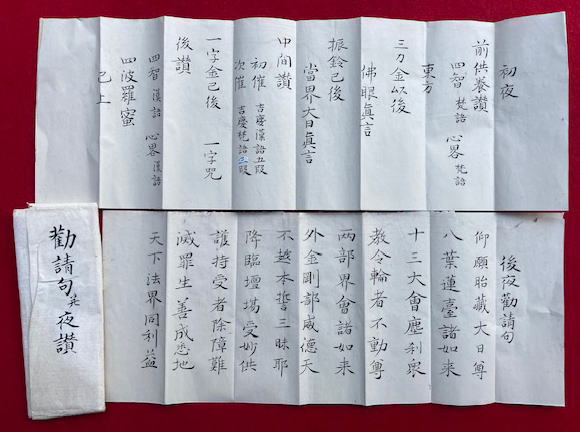 初夜
前供養讃
四智 梵語 心畧 梵語
東方
三力金以後
佛眼眞言
振鈴已後
當界大日眞言
中間讃
初催 吉慶漢語五段
次催 吉慶梵語三段
一字金已後 一字咒
後讃
四智 漢語 心畧 漢語
四波羅蜜
已上
後夜勸請句
仰願胎藏大日尊
八葉蓮臺諸如来
十三大會塵刹衆
教令輪者不動尊
両部界會諸如来
外金剛部威德天
不越本誓三昧耶
降臨壇場受妙供
護持受者除障難
滅罪生善成悉地
天下法界同利益
勸請句并夜讃